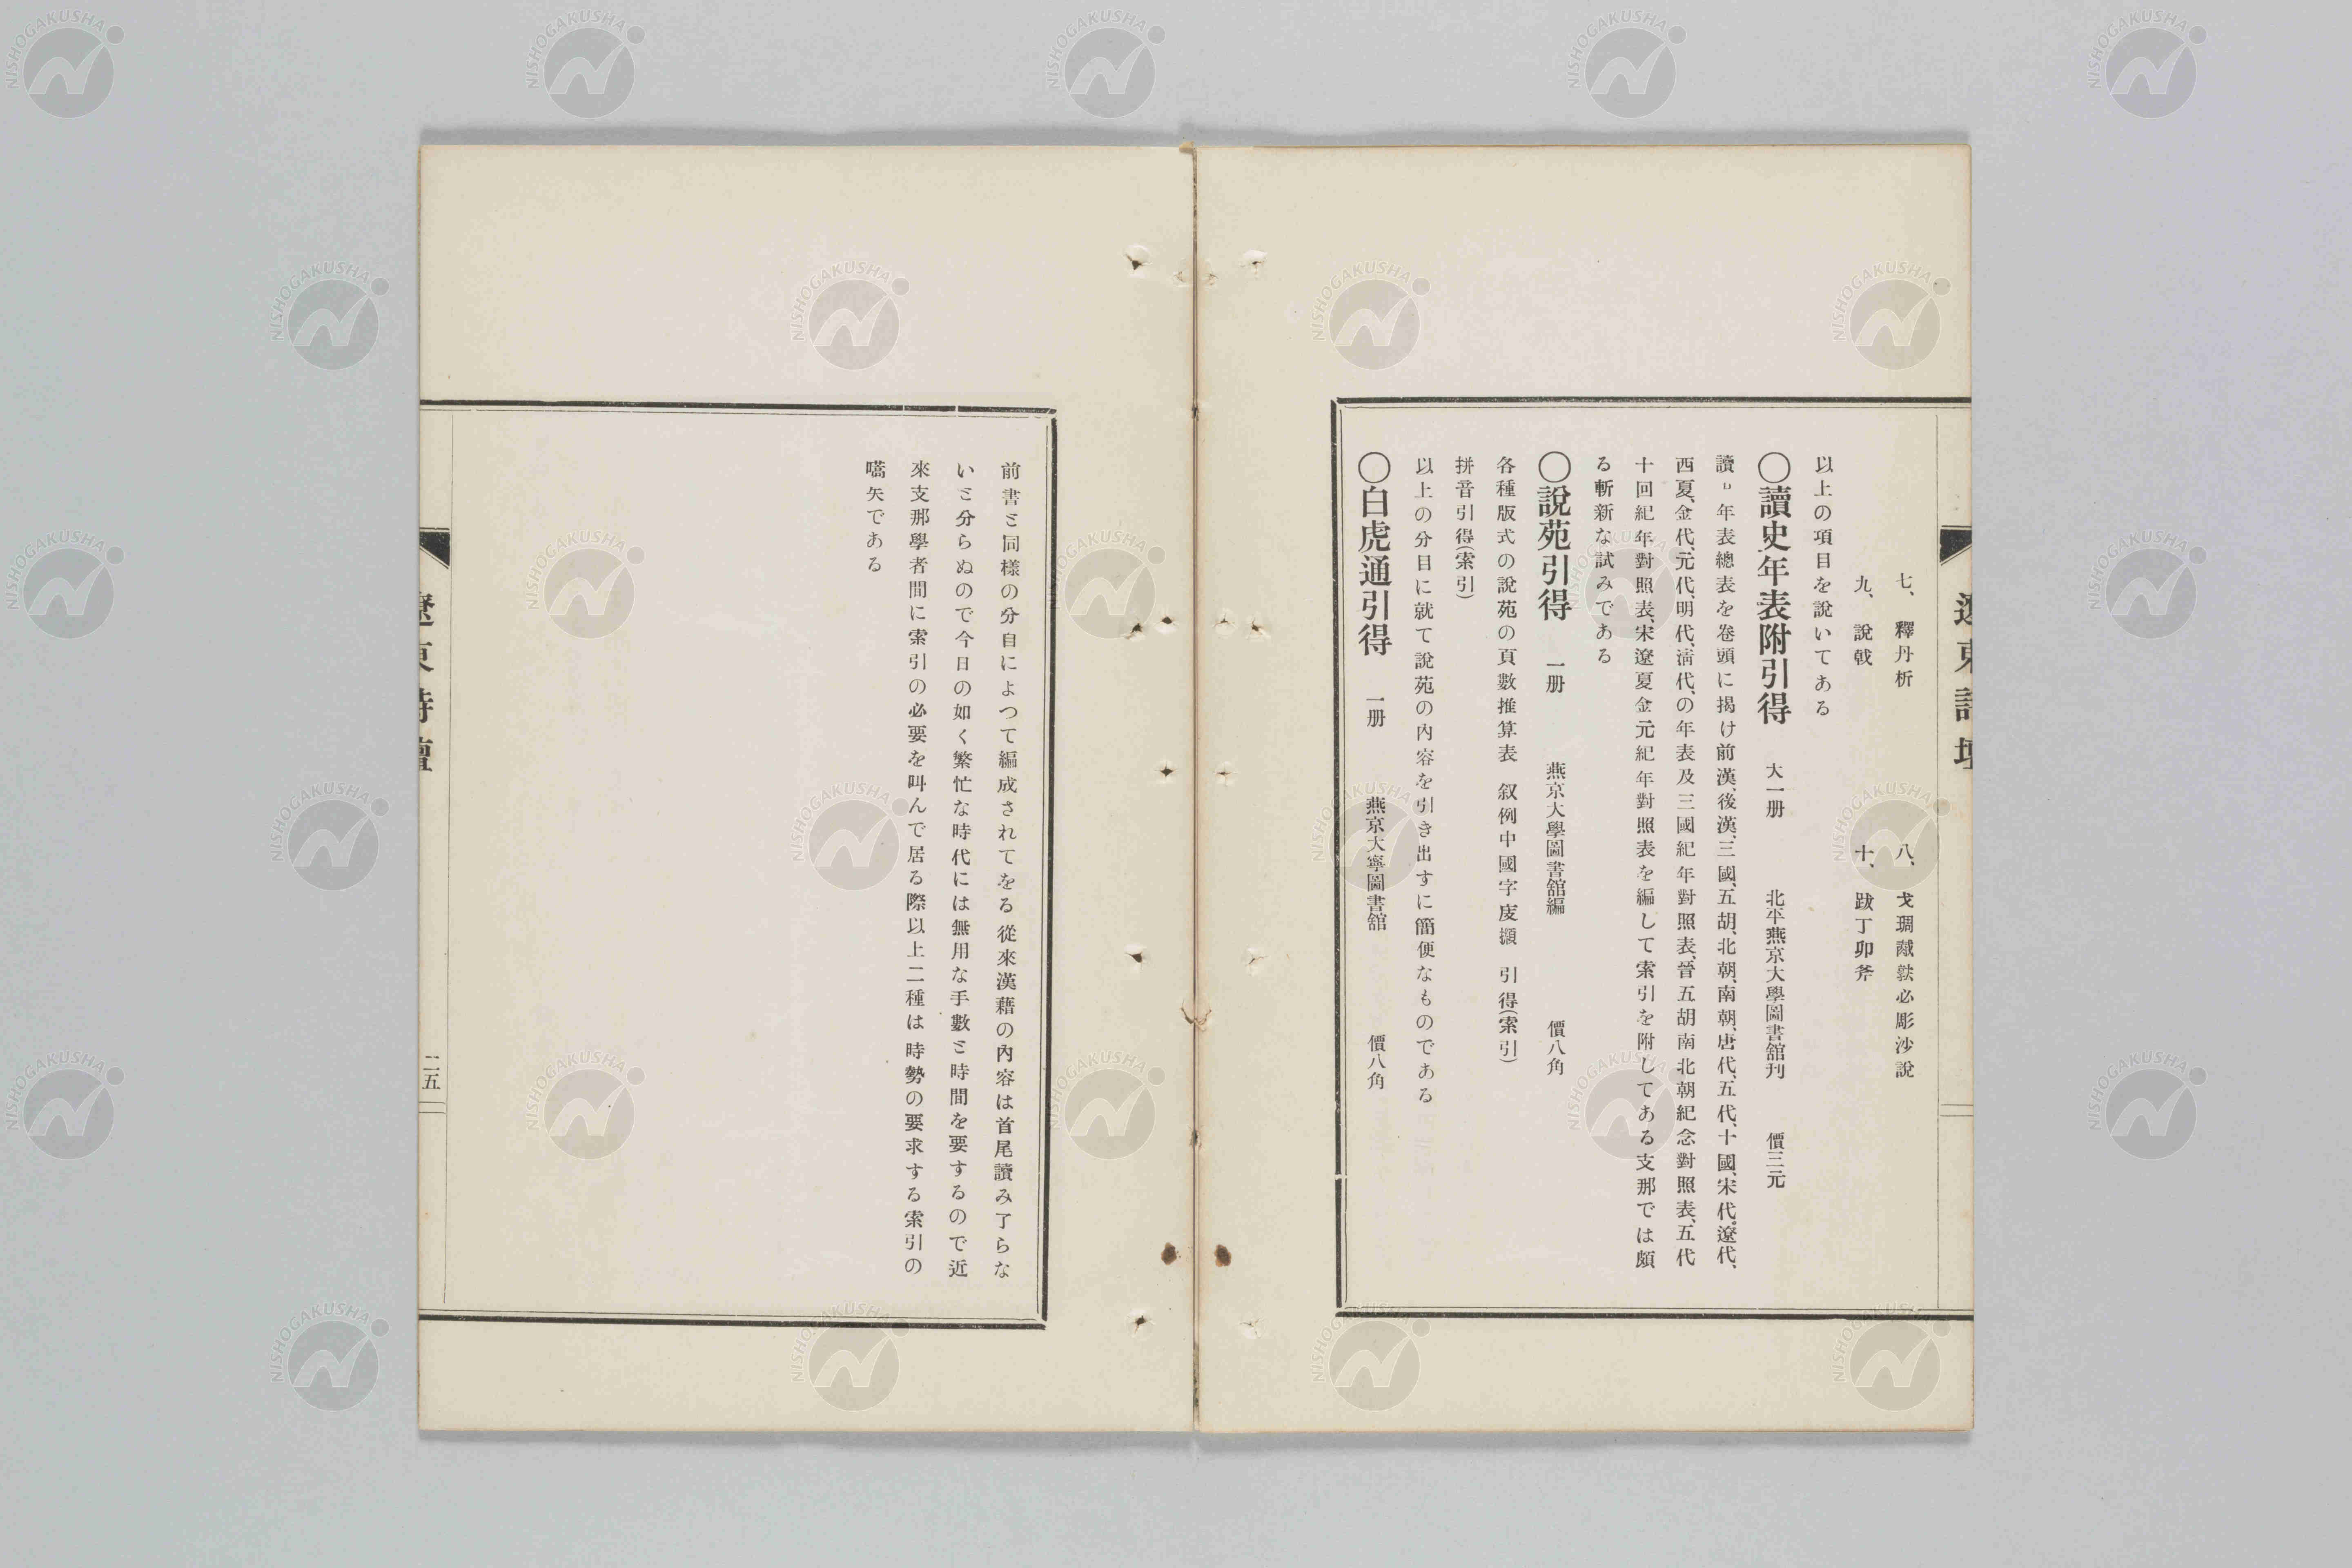 七、釋丹析　八、戈琱䤋㦸必彫沙說
九、說戟　十、跋丁卯斧
以上の項目を說いてある
〇讀史年表附引得　大一册　北平燕京大學圖書舘刋　價三元
讀㠯年表總表を卷頭に揭け前漢、後漢、三國、五胡、北朝、南朝、唐代、五代、十國、宋代、遼代、
西夏、金代、元代、明代、淸代、の年表及三國紀年對照表、晉五胡南北朝紀念對照表、五代
十回紀年對照表、宋遼夏金元紀年對照表を編して索引を附してある支那では頗
る斬新な試みである
〇說苑引得　一册　燕京大學圖書舘編　價八角
各種版式の說苑の頁數推算表　叙例中國字庋擷　引得(索引)
拼音引得(索引)
以上の分目に就て說苑の內容を引き出すに簡便なものである
〇白虎通引得　一册　燕京大寧圖書舘　價八角
遼東詩壇
前書ミ同樣の分自によつて編成されてをる從來漢藉の內容は首尾讀み了らな
いミ分らぬので今日の如く繁忙な時代には無用な手數ミ時間を要するので近
來支那學者間に索引の必要を叫んで居る際以上二種は時勢の要求する索引の
嚆矢である
遼東詩壇
二五
NISHOGAKUSHA